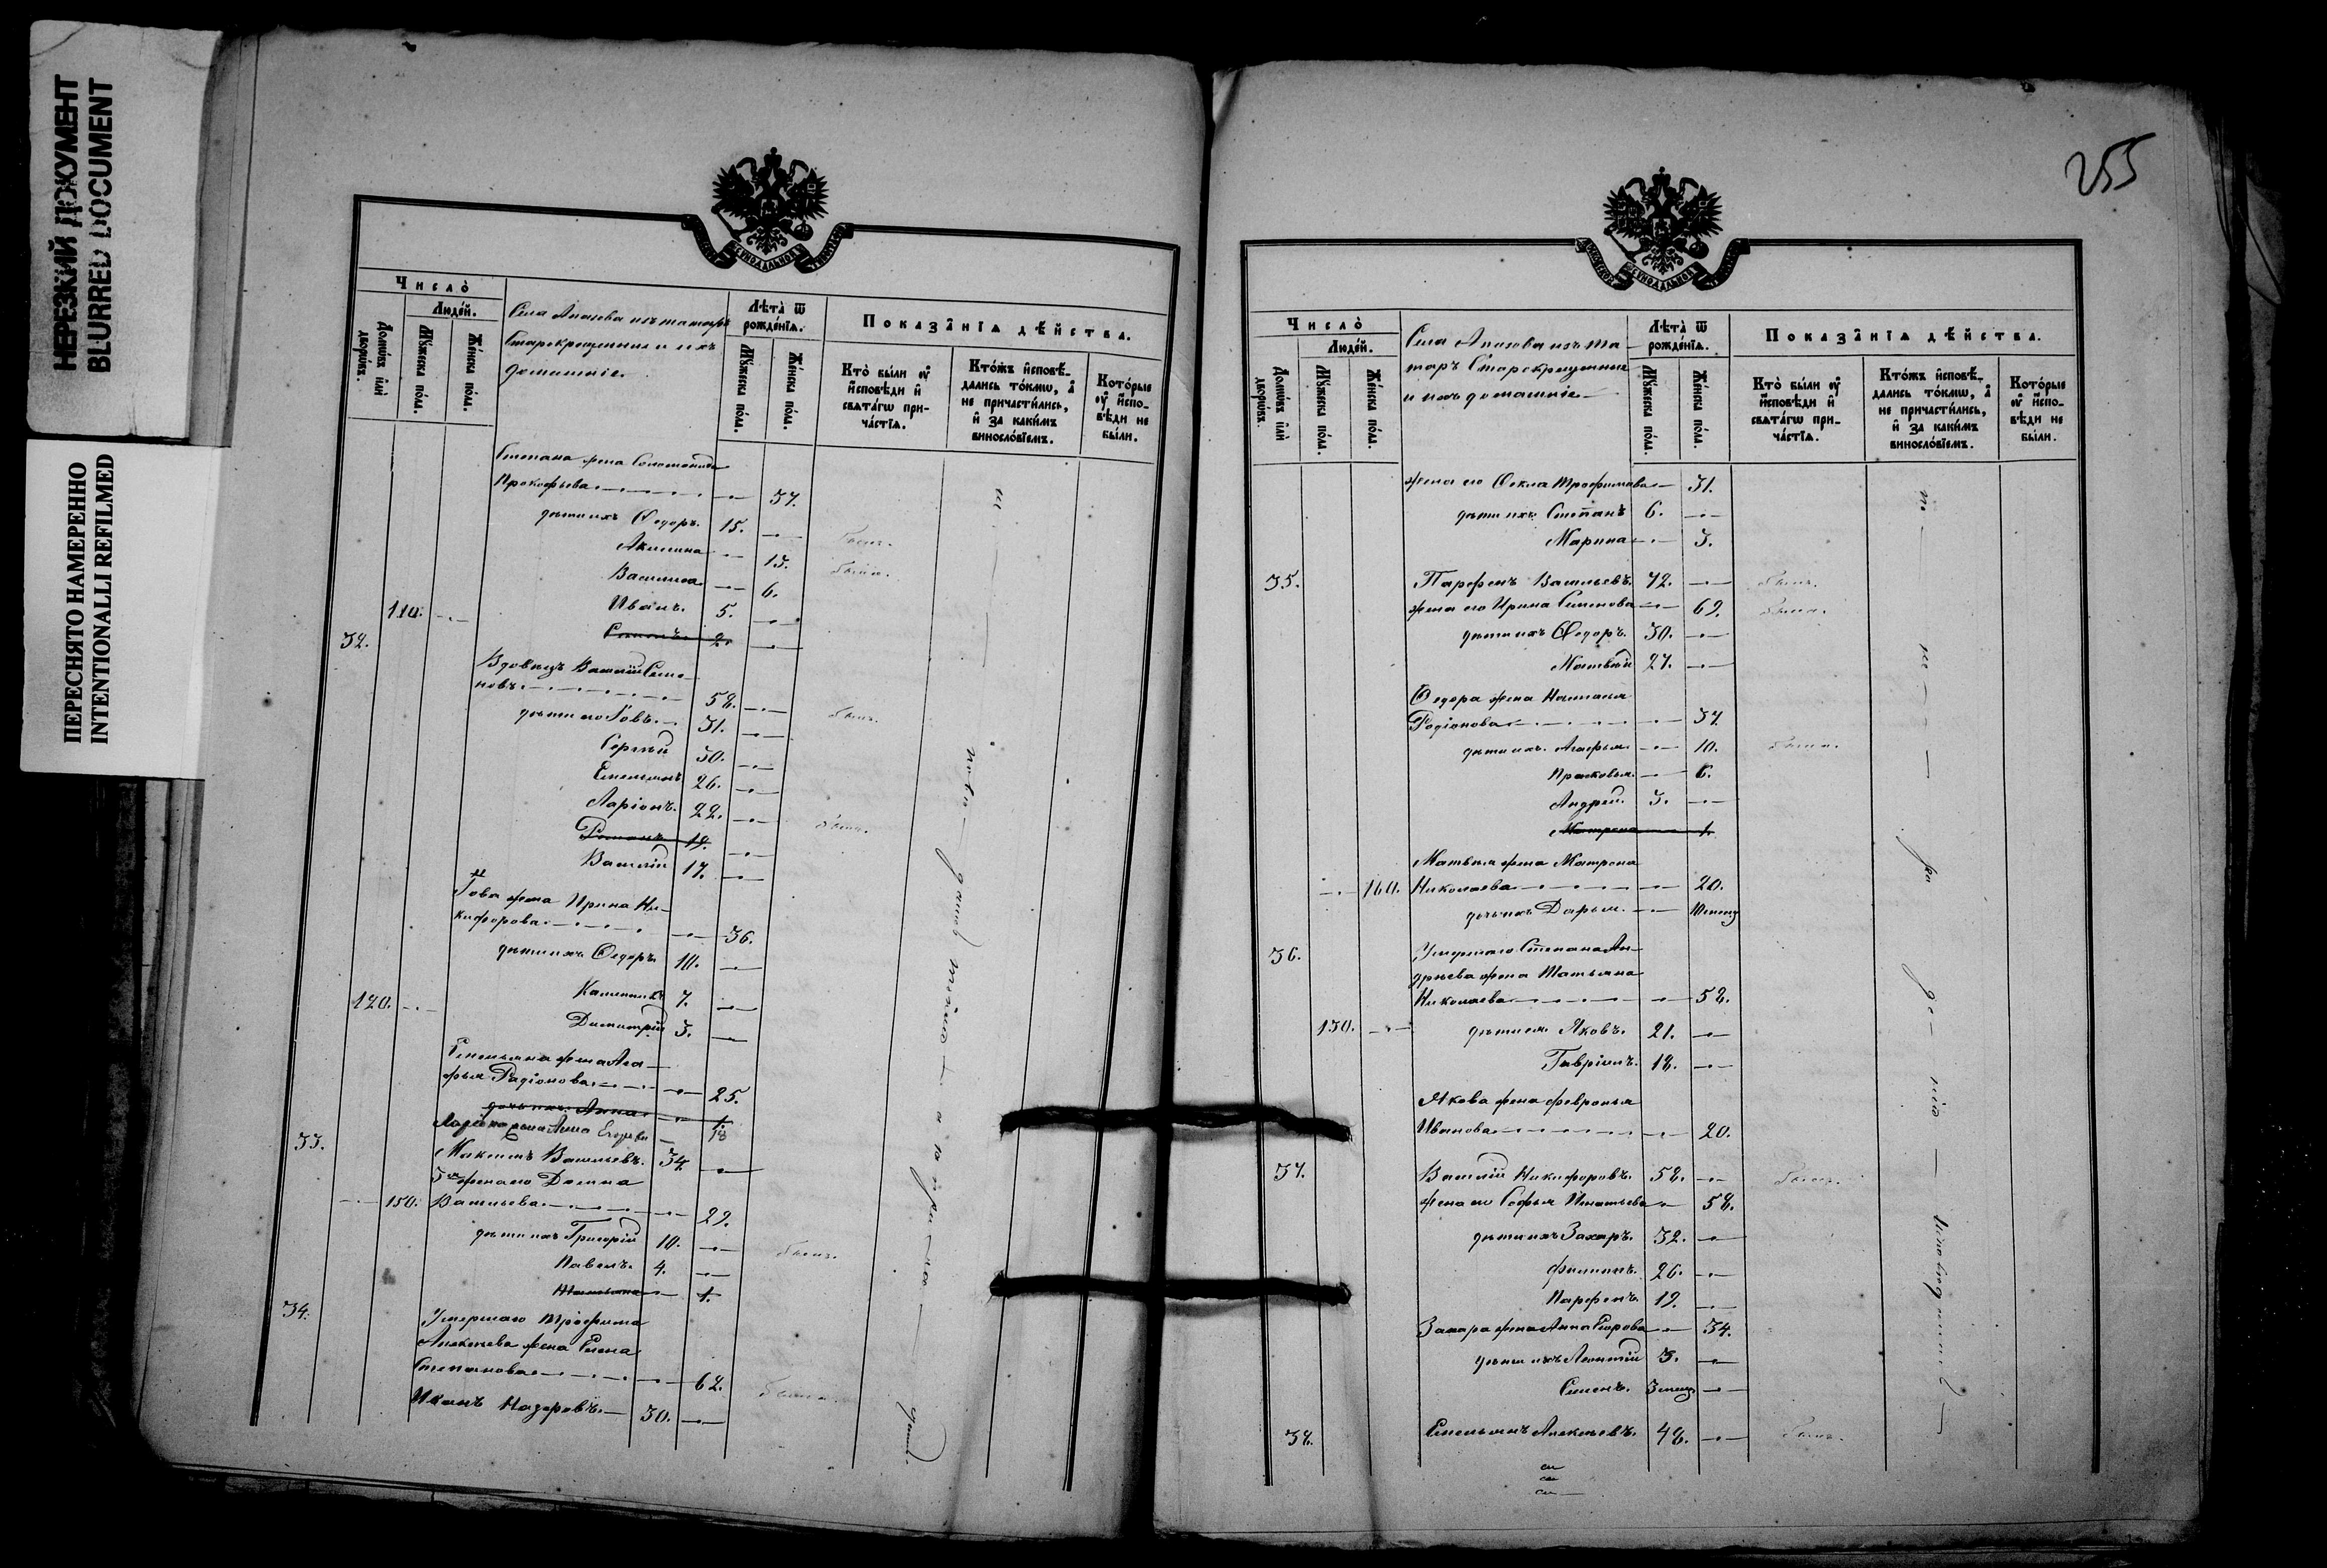 НЕРЕЗКИЙ ДОКУМЕНТ
BLURRED DOCUMENT
ПЕРЕСНЯТО НАМЕРЕННО
INTENTIONALLI REFILMED
Число̀
Домѡ́въ и҆лѝ дворѡ́въ.
Люде́й.
Мꙋ́жеска по́ла.
Же́нска по́ла.
Села Апазова изъ татаръ
Старокрещенные и ихъ
домашніе.
Лѣта̀ ѿ рожде́нїѧ.
Мꙋ́жеска по́ла.
Же́нска по́ла.
Показа̑нїѧ дѣ́йства.
Кто̀ бы́ли ᲂу҆ и҆сповѣди и҆ свѧта́гѡ прича́стїѧ.
Кто́жъ и҆сповѣ́дались то́кмѡ, а҆ не причасти́лись, и҆ за каки́мъ виносло́вїемъ.
Кото́рые ᲂу҆ и҆сповѣди не бы́ли.
Степана жена Соломонида
Прокофьева 37.
дѣти ихъ Ѳедоръ. 15. былъ.
Акилина 13. была.
Василиса 6.
110. Иванъ. 5.
Семенъ. 2.
32. Вдовецъ Василій Семе-
новъ. 58. былъ.
дѣти его Іовъ. 31.
Сергѣй 30.
Емельянъ 26.
Ларіонъ. 22. былъ.
Романъ 19.
Василій 17.
Іова жена Ирина Ни-
кифорова 36.
дѣти ихъ Ѳедоръ. 10.
Калинникъ 7.
120. Димитрій 3.
Емельяна жена Ага-
фья Радіонова 25.
дочь ихъ Анна 1.
Ларіона жена Анна Егорова 18
33. Максимъ Васильевъ. 34.
3я жена его Домна
150. Васильева 29.
дѣти ихъ Григорій 10. былъ.
Павелъ. 4.
Татьяна 1.
34. Умершаго Трофима
Алексѣева жена Елена
Степанова 62. была.
Иванъ Назаровъ. 30.
255
Число̀
Домѡ́въ и҆лѝ дворѡ́въ.
Люде́й.
Мꙋ́жеска по́ла.
Же́нска по́ла.
Села Апазова изъ та-
таръ Старокрещенные
и ихъ домашніе
Лѣта̀ ѿ рожде́нїѧ.
Мꙋ́жеска по́ла.
Же́нска по́ла.
Показа̑нїѧ дѣ́йства.
Кто̀ бы́ли ᲂу҆ и҆сповѣди и҆ свѧта́гѡ прича́стїѧ.
Кто́жъ и҆сповѣ́дались то́кмѡ, а҆ не причасти́лись, и҆ за каки́мъ виносло́вїемъ.
Кото́рые ᲂу҆ и҆сповѣди не бы́ли.
жена его Ѳекла Трофимова 31.
дѣти ихъ Степанъ 6.
Марина 3.
35. Парфенъ Васильевъ. 72. былъ.
жена его Ирина Семенова 69. была.
дѣти ихъ Ѳедоръ. 30.
Матвѣй 27.
Ѳедора жена Наталья
Родіонова 37.
дѣти ихъ. Агафья 10. была.
Прасковья 6.
Андрей. 3.
Матрена 1.
Матвѣя жена Матрена
160. Николаева 20.
дочь ихъ Дарья. 10 мѣсяц
36. Умершаго Степана Ан-
дреева жена Татьяна
Николаева 58.
130. дѣти ея. Яковъ. 21.
Гавріилъ. 18.
Якова жена Февронья
Иванова 20.
37. Василій Никифоровъ. 58. былъ.
жена его Софья Игнатьева 58.
дѣти ихъ Захаръ. 32.
Филиппъ. 26.
Парфенъ. 19.
Захара жена Анна Егорова 34.
дѣти ихъ Леонтій 3.
Семенъ. 3 мѣсяц
38. Емельянъ Алексѣевъ. 48. былъ.